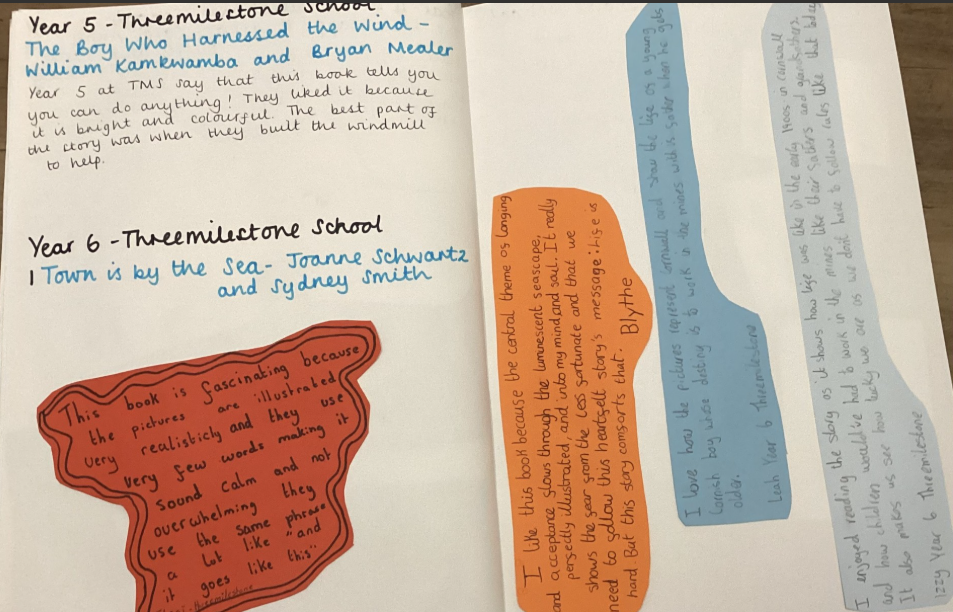 Year 5 - Threemilestone School
The Boy Who Harnessed the Wind -
William Kamkwamba and Bryan Mealer
Year 5 at TMS say that this book tells you
you can do anything! They liked it because
it is bright and colourful. The best part of
the story was when they built the windmill
to help.
Year 6 - Threemilestone School
Town is by the Sea - Joanne Schwartz
and Sydney Smith
This book is fascinating because
the pictures are illustrated
very realisticly and they use
very few words making it
sound calm and not
overwhelming they
use the same phrase
a lot like "and
it goes like this"
Threemilestone
I like this book because the central theme of longing
and acceptance flows through the luminescent seascape,
perfectly illustrated, and into my mind and soul. It really
shows the fear from the less fortunate and that we
need to follow this heartfelt story's message: life is
hard. But this story comforts that. Blythe
I love how the pictures represent Cornwall and show the life of a young
Cornish boy whose destiny is to work in the mines with is father when he gets
older.
Leah Year 6 Threemilestone
I enjoyed reading the story as it shows how life was like in the early 1900s in Cornwall
and how children would've had to work in the mines like their fathers and grandfathers.
It also makes us see how lucky we are as we don't have to follow rules like that today
Izzy Year 6 Threemilestone